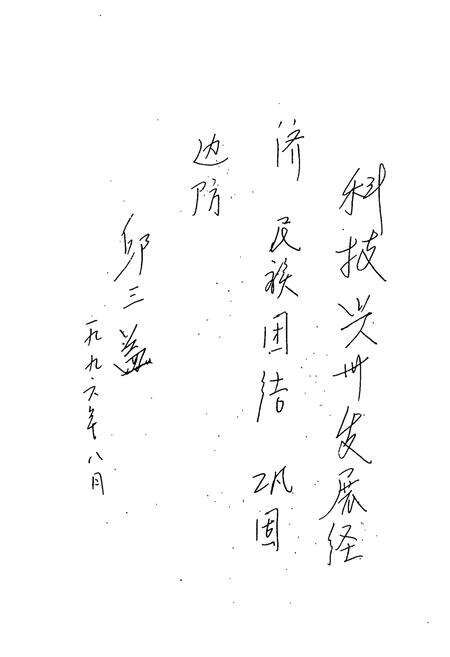 科技兴州发展经
济 民族团结 巩固
边防
邱三益
一九九六年八月